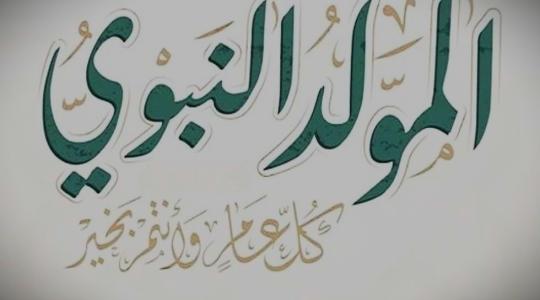 المَوّلِدُ النَبَوْيّ
كُلُّ عَامٍ وَأَنْتُمْ بِخَيْرٍ